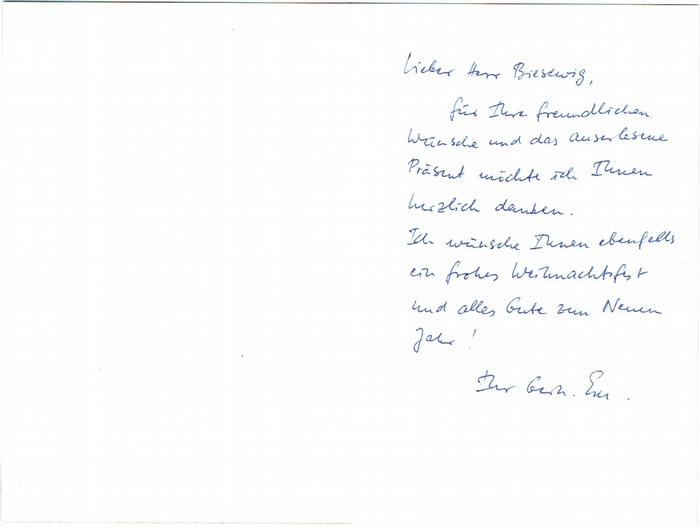 Lieber Herr Biesewig,
für Ihre freundlichen
Wünsche und das auserlesene
Präsent möchte ich Ihnen
herzlich danken.
Ich wünsche Ihnen ebenfalls
ein frohes Weihnachtsfest
und alles Gute zum Neuen
Jahr!
Ihr